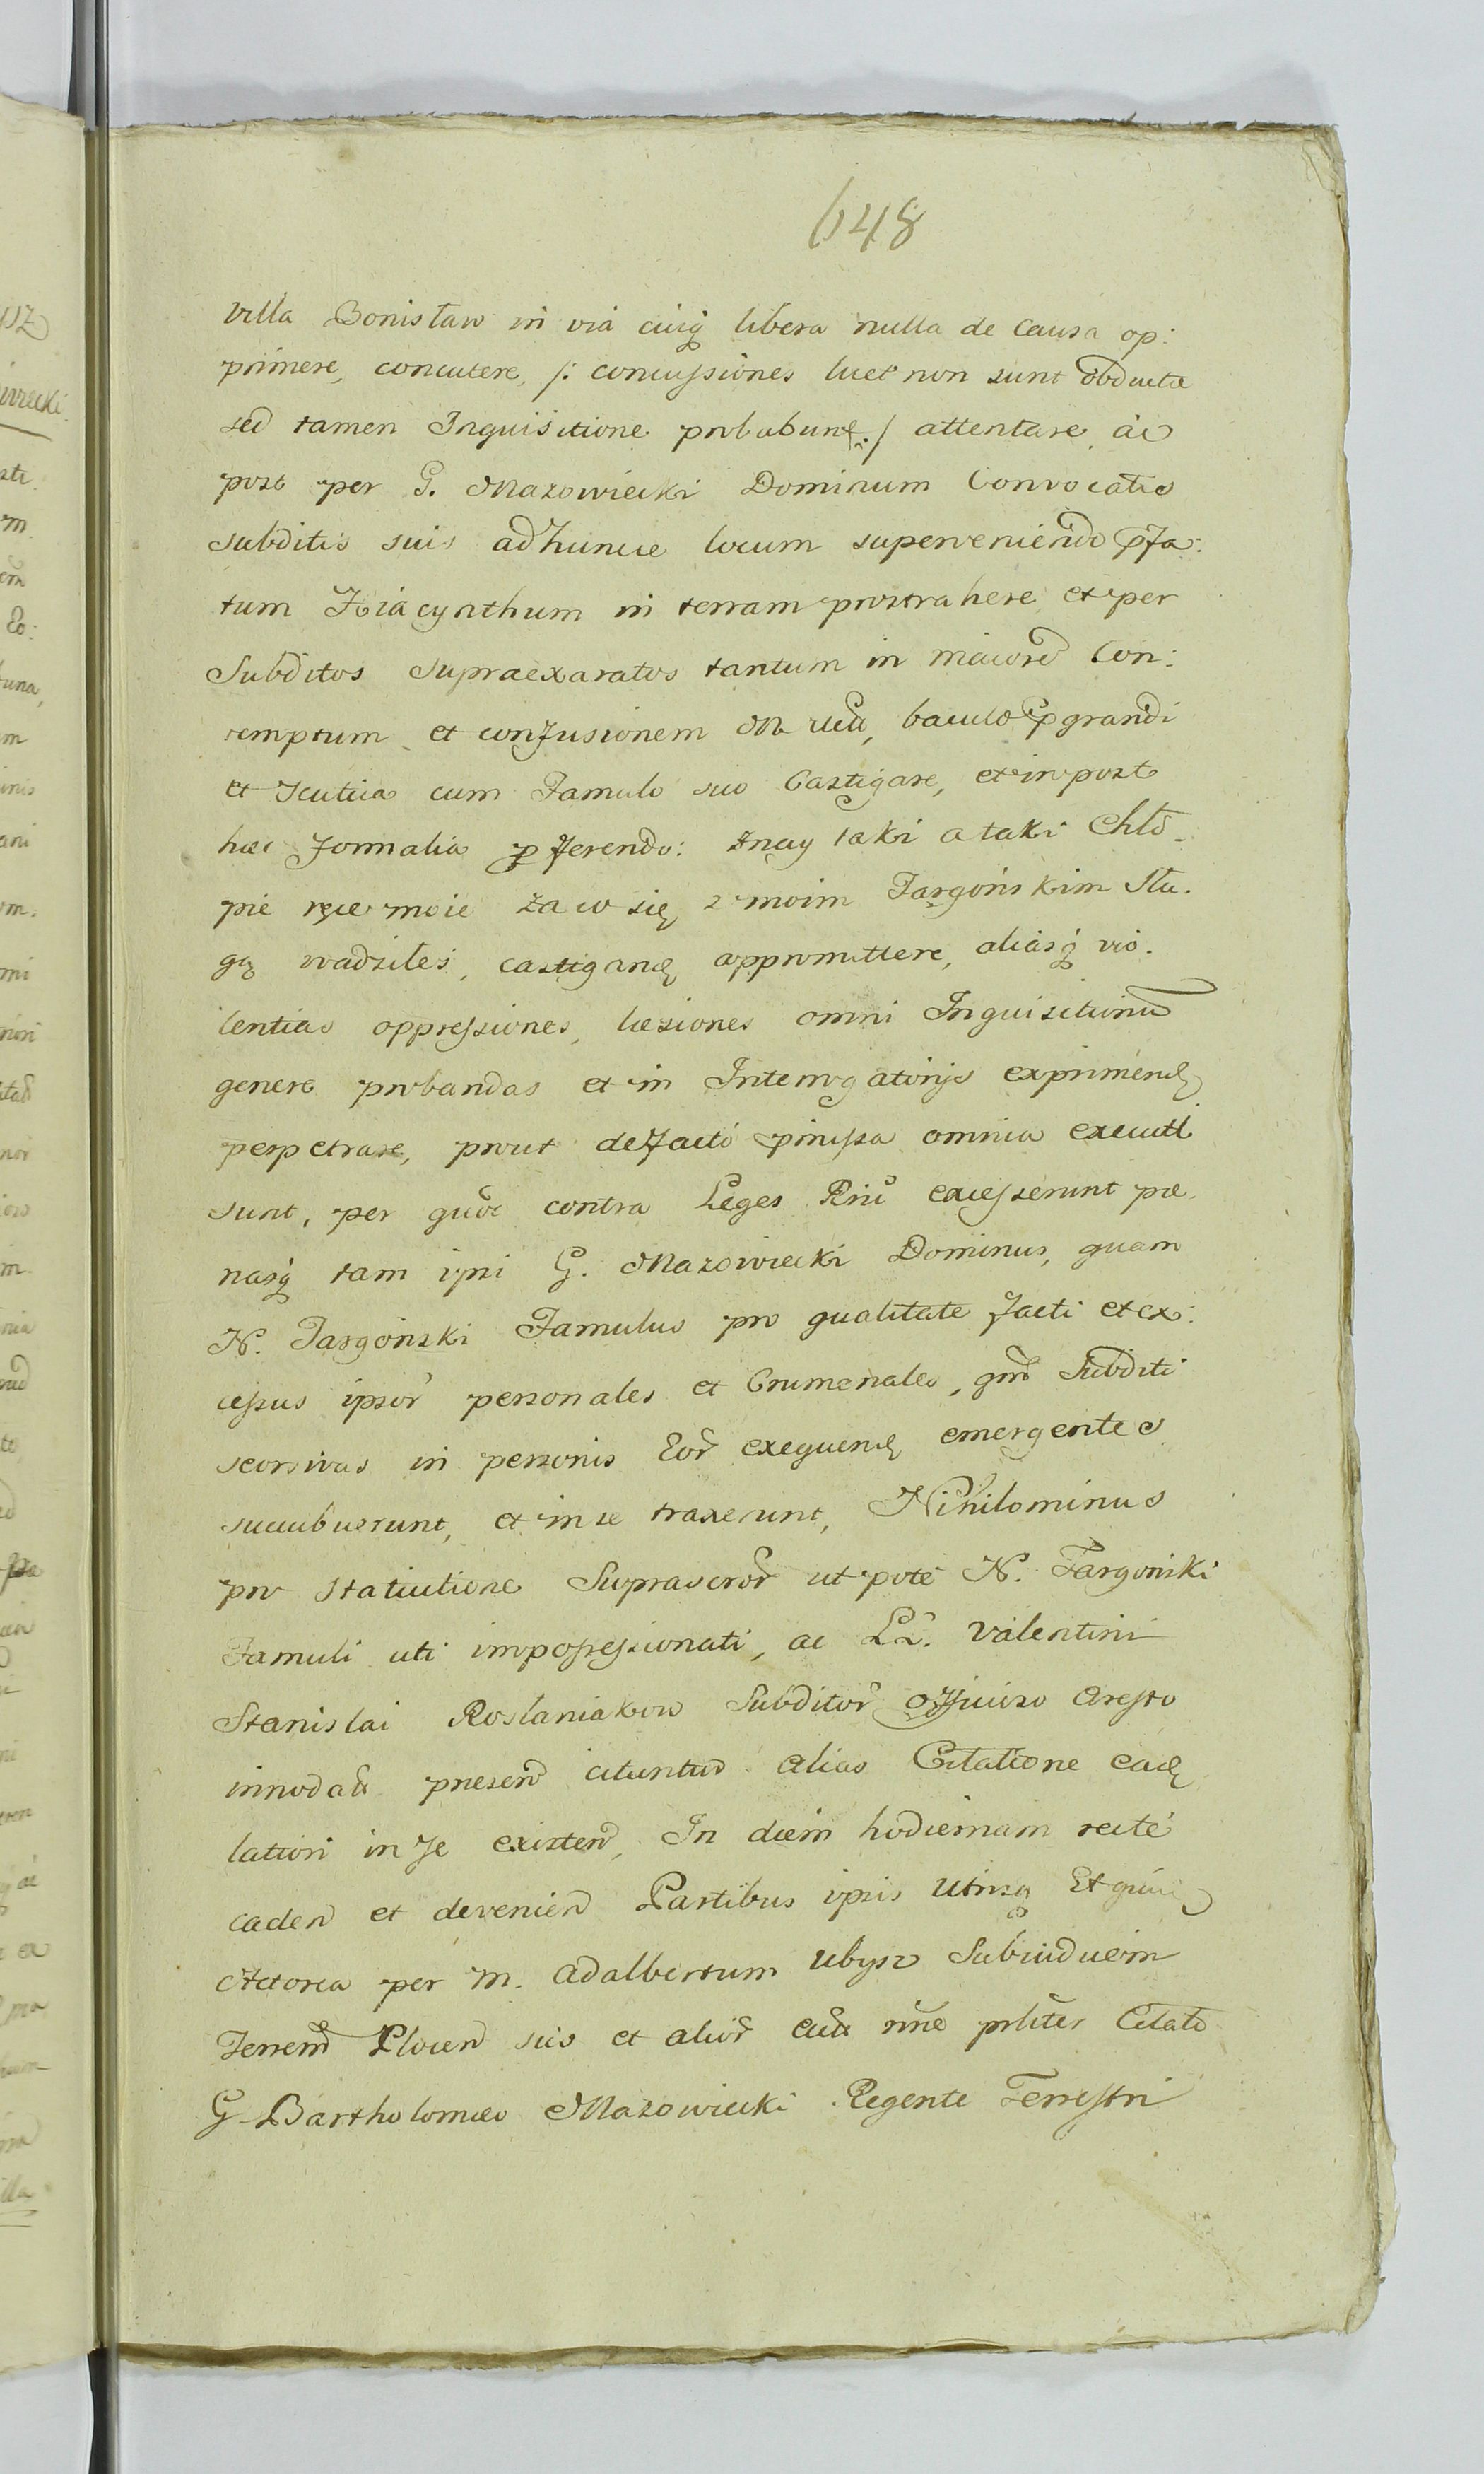 648
Villa Bonisław in via cuiq libera nulla de Causa op:
primere, concutere, /: concussiones licet non sunt obductæ
sed tamen Inquisitione probabunt :/ attentare ac
post per G. Mazowiecki Dominum Convocatis
subditis suis adhunce locum superveniendo pfa:
tum Hiacynthum in terram prostrahere et per
Subditos supraexaratos tantum in maiore Con:
temptum et confusionem baculo p grandi
et scutica cum Famulo suo Castigare, et in post
hæc formalia pferendo: znay taki a taki Chło-
pie ręce moie za co się z moim Targońskim Słu.
gą wadziłeś, castigand appromittere, aliasq vio.
lentias oppressiones, læsiones omni Inquisitionu
genere probandas et in Interrogatorijs exprimend
perpetrare, prout defacto pmissa omnia executi
sunt, per quæ contra Leges Rni excesserunt pæ
nasq tam ipsi G. Mazowiecki Dominus, quam
N. Targoński Famulus pro qualitate facti et ex:
cessus ipsor personales et Criminales, qm Subditi
seorsivas in personis Eor exequend emergentes
succubuerunt, et in se traxerunt, Nihilominus
pro statuitione Suprascror utpote N. Targoński
Famuli uti impossessionati, ac LL. Valentini
Stanislai Roslaniakow Subditor officioso Aresto
innodat presen cituntur alias Citatione ead
latiori in se existen, In diem hodiernam recte
caden et devenien Partibus ipsis Utrisq Et quid
Actorea per M. Adalbertum Ubysz Subiudicem
Terrem Plocen suo et alior cat nne prliter Citato
G Bartholomæo Mazowiecki Regente Terrestri